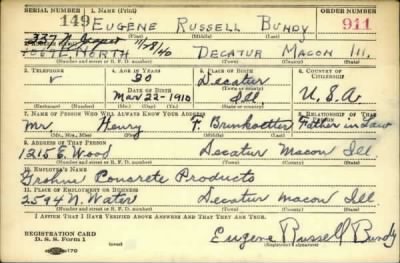 SERIAL NUMBER 1. NAME (Print) ORDER NUMBER
149 EUGENE RUSSELL BUNDY 911
(First) (Middle) (Last)
337 N. 11/28/40
NORTH DECATUR MACON Ill.
3. TELEPHONE 4. AGE IN YEARS 5. PLACE OF BIRTH 6. COUNTRY OF CITIZENSHIP
30 Decatur
DATE OF BIRTH
Mar 22-1910 Ill. U.S.A.
(Exchange) (Number) (Mo.) (Day) (Yr.) (State or country)
7. NAME OF PERSON WHO WILL ALWAYS KNOW YOUR ADDRESS 8. RELATIONSHIP OF THAT PERSON
Mr. Henry F. Brinkoetter Father in Law
(Mr., Mrs., Miss) (First) (Middle) (Last)
9. ADDRESS OF THAT PERSON
1215 E. Wood Decatur Macon Ill
(Number and street or R. F. D. number) (Town) (County) (State)
10. EMPLOYER'S NAME
Grohne Concrete Products
11. PLACE OF EMPLOYMENT OR BUSINESS
2594 N. Water Decatur Macon Ill
(Number and street or R. F. D. number) (Town) (County) (State)
I AFFIRM THAT I HAVE VERIFIED ABOVE ANSWERS AND THAT THEY ARE TRUE.
REGISTRATION CARD
D. S. S. Form 1 Eugene Russell Bundy
(Registrant's signature)